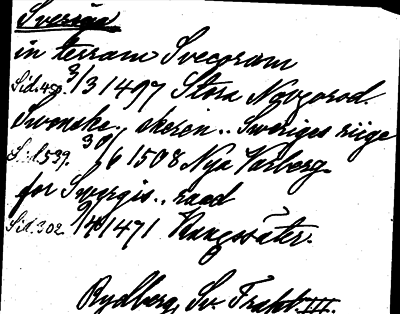 Sverige
in terram Svecorum
Sid. 450. 3/3 1497 Stora Novgorod.
Swenske, skeren .. Sweriges riige
Sid. 539. 30/6 1508 Nya Varberg.
for Swergis .. raad
Sid. 302. 9/4 1471 Kungssäter.
Rydberg, Sv. Trakt. III.